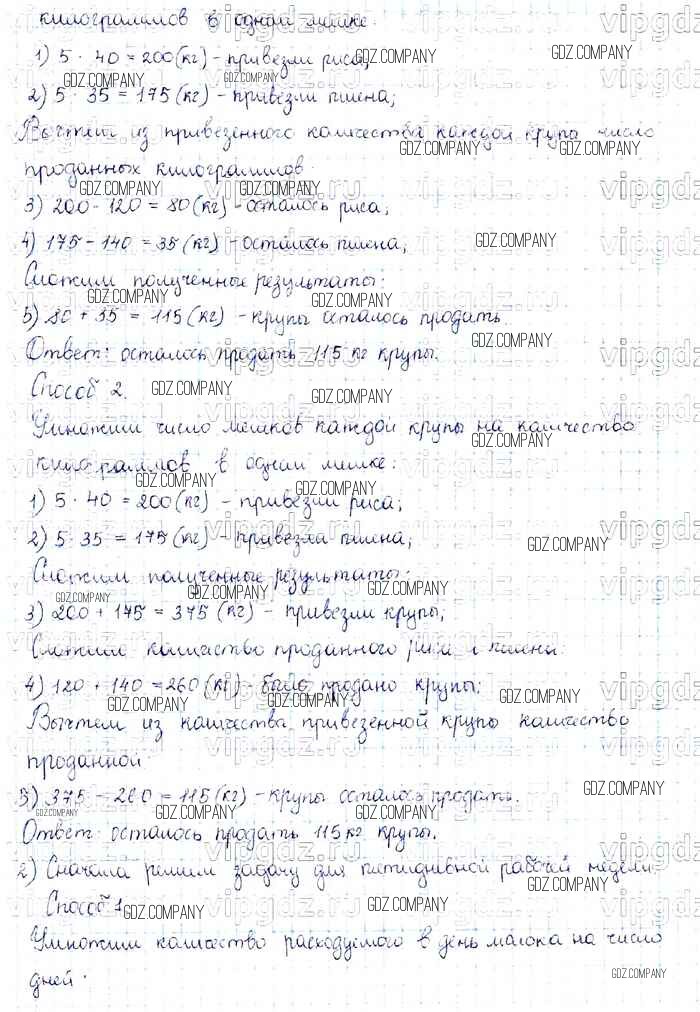 килограммов в одном мешке.
1) 5 · 40 = 200 (кг) - привезли риса;
2) 5 · 35 = 175 (кг) - привезли пшена;
Вычтем из привезенного количества каждой крупа число
проданных килограммов.
3) 200 - 120 = 80 (кг) - осталось риса;
4) 175 - 140 = 35 (кг) - осталось пшена;
Сложим полученные результаты:
5) 80 + 35 = 115 (кг) - крупы осталось продать.
Ответ: осталось продать 115 кг крупы.
Способ 2.
Умножим число мешков каждой крупы на количество
килограммов в одном мешке:
1) 5 · 40 = 200 (кг) - привезли риса;
2) 5 · 35 = 175 (кг) - привезла пшена;
Сложим полученные результаты:
3) 200 + 175 = 375 (кг) - привезли крупы;
Сложим количество проданного риса и пшена:
4) 120 + 140 = 260 (кг) - было продано крупы:
Вычтем из количества привезенной крупы количество
проданной
5) 375 - 260 = 115 (кг) - крупы осталось продать.
Ответ: осталось продать 115 кг крупы.
2) Сначала решим задачу для пятидневной рабочей недели.
Способ 1.
Умножим количество расходуемого в день молока на число
дней.
GDZ.COMPANY
vipgdz.ru